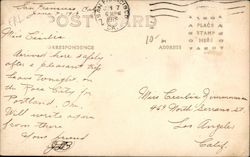 San Francisco
POST CARD
Miss Cecilia
CORRESPONDENCE
ADDRESS
PLACE
STAMP
HERE
10-
Arrived here safely
after a pleasant trip
Leave tonight, on
the Rose City for
Portland, Ore.
Will write again
from there
Your friend
Miss Cecilia
469 North Serrano St.
Los Angeles
Calif.